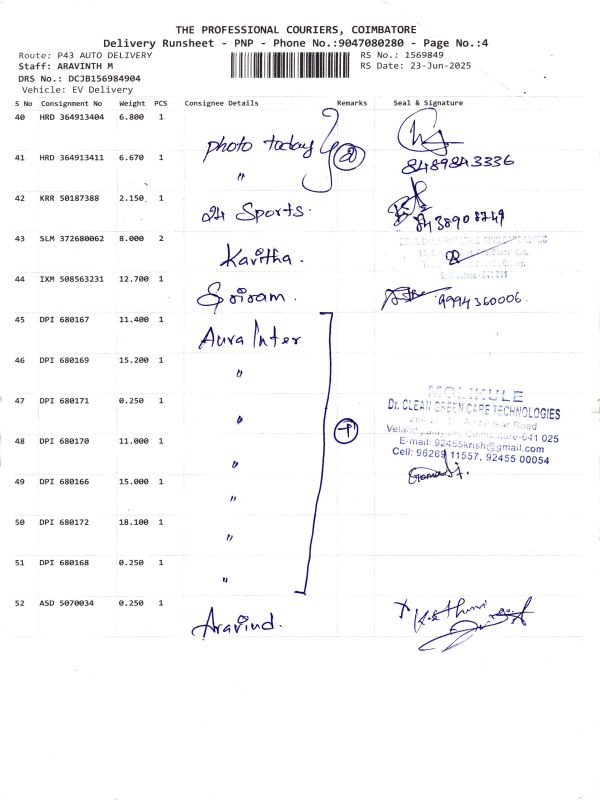 THE PROFESSIONAL COURIERS, COIMBATORE
Delivery Runsheet - PNP - Phone No.:9047080280 - Page No.:4
Route: P43 AUTO DELIVERY RS No.: 1569849
Staff: ARAVINTH M RS Date: 23-Jun-2025
DRS No.: DCJB156984904
Vehicle: EV Delivery
S No Consignment No Weight PCS Consignee Details Remarks Seal & Signature
40 HRD 364913404 6.800 1 photo today 2
41 HRD 364913411 6.670 1 " 8489843336
42 KRR 50187388 2.150 1 24 Sports.
43 SLM 372680062 8.000 2 Kavitha.
44 IXM 508563231 12.700 1 Sriram. 9994360006.
45 DPI 680167 11.400 1 Aura Inter
46 DPI 680169 15.200 1 "
47 DPI 680171 0.250 1 "
MOLIKULE
Dr. CLEAN GREEN CARE TECHNOLOGIES
48 DPI 680170 11.000 1 "
Coimbatore-641 025
E-mail: 92455krish@gmail.com
Cell: 96269 11557, 92455 00054
49 DPI 680166 15.000 1 "
50 DPI 680172 18.100 1 "
51 DPI 680168 0.250 1 "
52 ASD 5070034 0.250 1 Aravind.